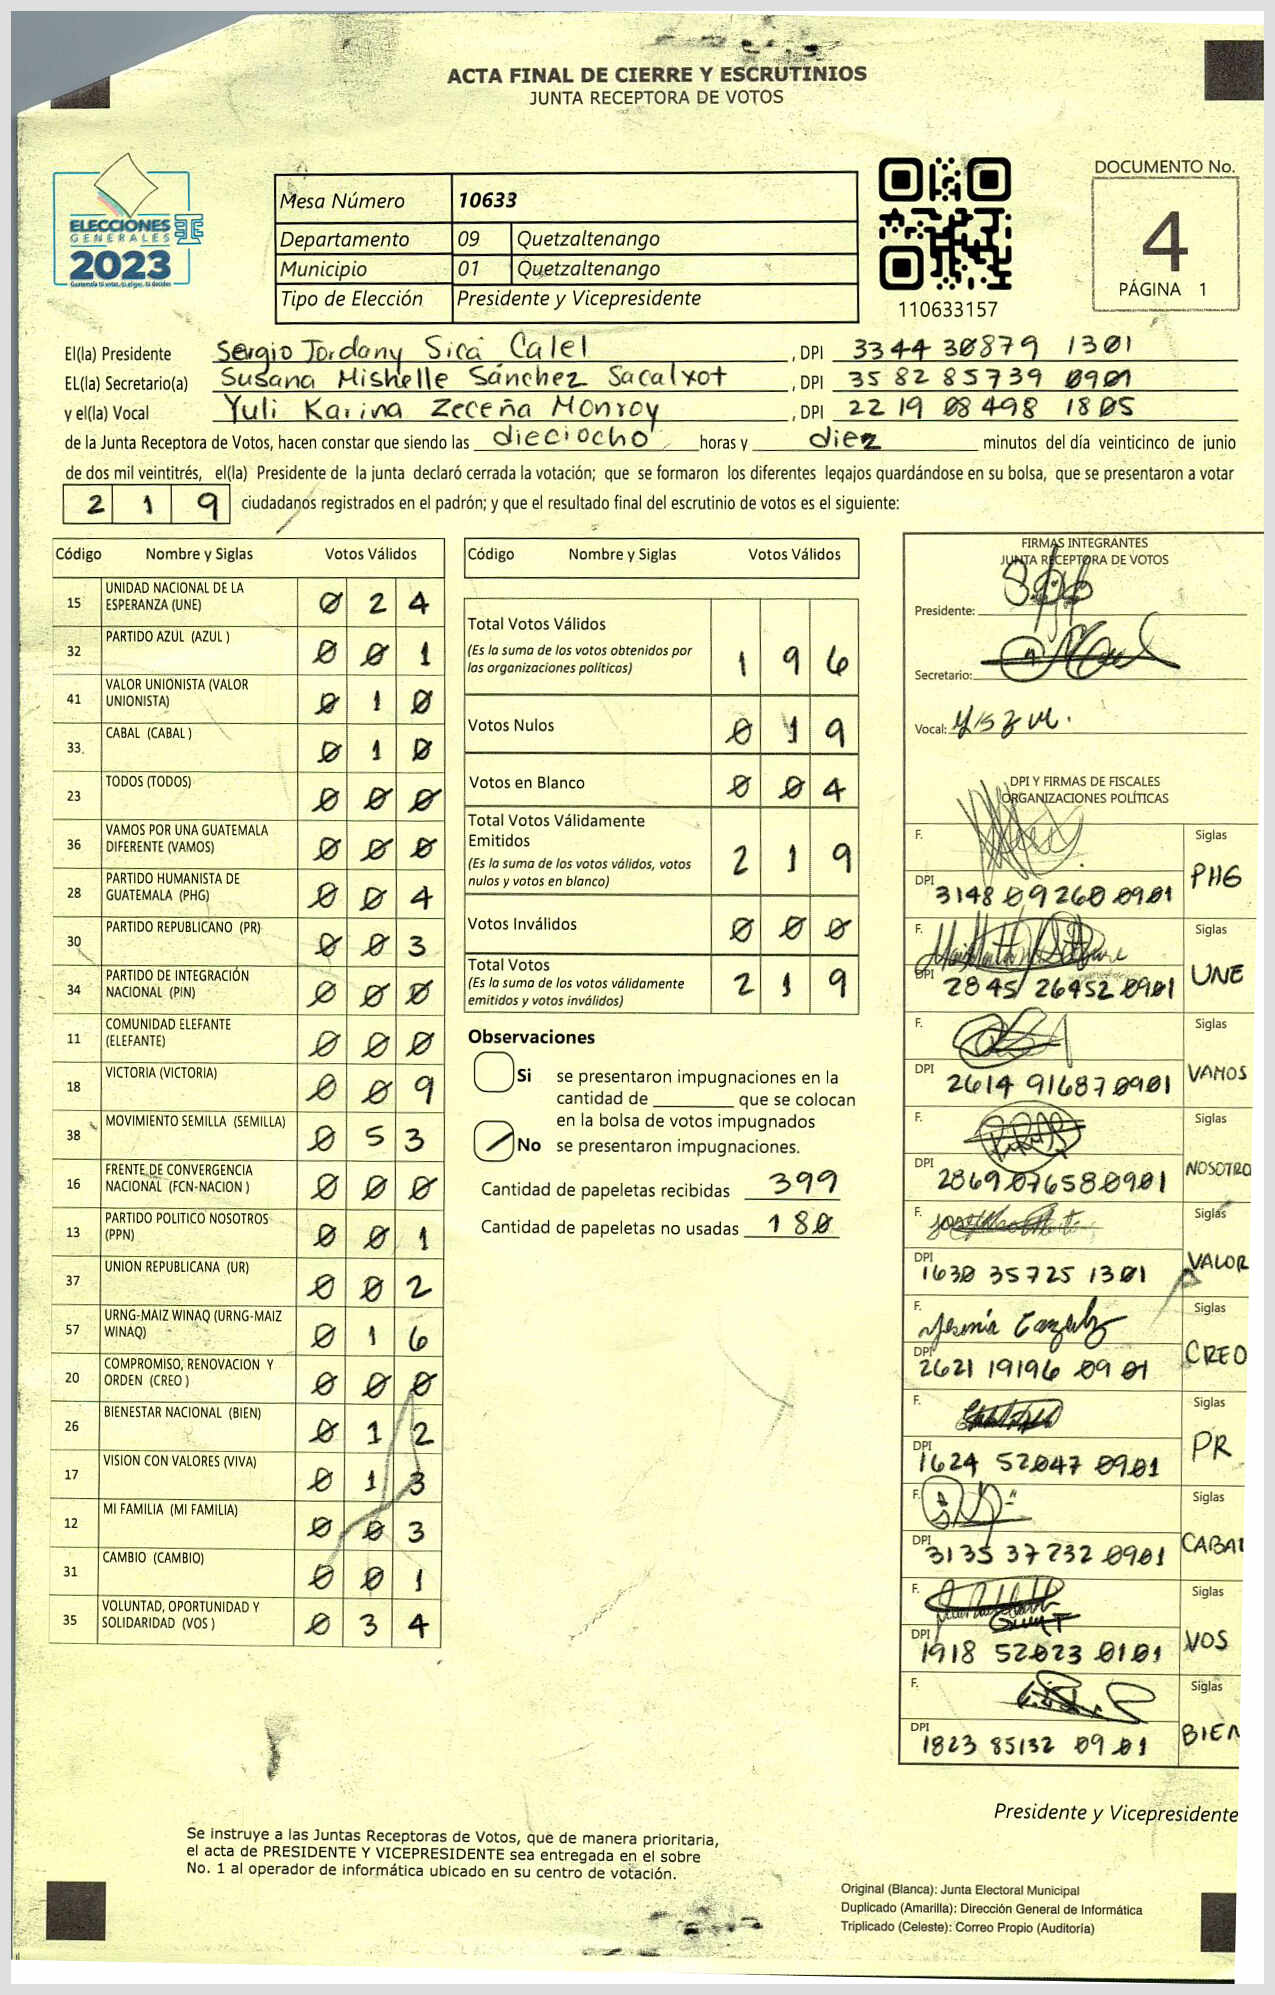 ACTA FINAL DE CIERRE Y ESCRUTINIOS
JUNTA RECEPTORA DE VOTOS
ELECCIONES
GENERALES
2023
Guatemala tú votas, tú eliges, tú decides
Mesa Número 10633
Departamento 09 Quetzaltenango
Municipio 01 Quetzaltenango
Tipo de Elección Presidente y Vicepresidente
110633157
DOCUMENTO No.
4
PÁGINA 1
El(la) Presidente Sergio Jordany Sicá Calel , DPI 3344 30879 1301
EL(la) Secretario(a) Susana Mishelle Sánchez Sacalxot , DPI 3582 85739 0901
y el(la) Vocal Yuli Karina Zeceña Monroy , DPI 2219 08498 1805
de la Junta Receptora de Votos, hacen constar que siendo las dieciocho horas y diez minutos del día veinticinco de junio
de dos mil veintitrés, el(la) Presidente de la junta declaró cerrada la votación; que se formaron los diferentes legajos guardándose en su bolsa, que se presentaron a votar
219 ciudadanos registrados en el padrón; y que el resultado final del escrutinio de votos es el siguiente:
Código Nombre y Siglas Votos Válidos
15 UNIDAD NACIONAL DE LA
ESPERANZA (UNE) 0 2 4
32 PARTIDO AZUL (AZUL ) 0 0 1
41 VALOR UNIONISTA (VALOR
UNIONISTA) 0 1 0
33 CABAL (CABAL ) 0 1 0
23 TODOS (TODOS) 0 0 0
36 VAMOS POR UNA GUATEMALA
DIFERENTE (VAMOS) 0 0 0
28 PARTIDO HUMANISTA DE
GUATEMALA (PHG) 0 0 4
30 PARTIDO REPUBLICANO (PR) 0 0 3
34 PARTIDO DE INTEGRACIÓN
NACIONAL (PIN) 0 0 0
11 COMUNIDAD ELEFANTE
(ELEFANTE) 0 0 0
18 VICTORIA (VICTORIA) 0 0 9
38 MOVIMIENTO SEMILLA (SEMILLA) 0 5 3
16 FRENTE DE CONVERGENCIA
NACIONAL (FCN-NACION ) 0 0 0
13 PARTIDO POLITICO NOSOTROS
(PPN) 0 0 1
37 UNION REPUBLICANA (UR) 0 0 2
57 URNG-MAIZ WINAQ (URNG-MAIZ
WINAQ) 0 1 6
20 COMPROMISO, RENOVACION Y
ORDEN (CREO ) 0 0 0
26 BIENESTAR NACIONAL (BIEN) 0 1 2
17 VISION CON VALORES (VIVA) 0 1 3
12 MI FAMILIA (MI FAMILIA) 0 0 3
31 CAMBIO (CAMBIO) 0 0 1
35 VOLUNTAD, OPORTUNIDAD Y
SOLIDARIDAD (VOS ) 0 3 4
Código Nombre y Siglas Votos Válidos
Total Votos Válidos
(Es la suma de los votos obtenidos por
las organizaciones políticas) 1 9 6
Votos Nulos 0 1 9
Votos en Blanco 0 0 4
Total Votos Válidamente
Emitidos
(Es la suma de los votos válidos, votos
nulos y votos en blanco) 2 1 9
Votos Inválidos 0 0 0
Total Votos
(Es la suma de los votos válidamente
emitidos y votos inválidos) 2 1 9
Observaciones
Si se presentaron impugnaciones en la
cantidad de ________ que se colocan
en la bolsa de votos impugnados
No se presentaron impugnaciones.
Cantidad de papeletas recibidas 399
Cantidad de papeletas no usadas 180
FIRMAS INTEGRANTES
JUNTA RECEPTORA DE VOTOS
Presidente:
Secretario:
Vocal:
DPI Y FIRMAS DE FISCALES
ORGANIZACIONES POLÍTICAS
F. Siglas
DPI 3148 09260 0901 PHG
F. Siglas
DPI 2845 26452 0901 UNE
F. Siglas
DPI 2614 91687 0901 VAMOS
F. Siglas
DPI 2869 07658 0901 NOSOTRO
F. Siglas
DPI 1630 35725 1301 VALOR
F. Siglas
DPI 2621 19196 0901 CREO
F. Siglas
DPI 1624 52047 0901 PR
F. Siglas
DPI 3135 37232 0901 CABAL
F. Siglas
DPI 1918 52023 0101 VOS
F. Siglas
DPI 1823 85132 0901 BIEN
Presidente y Vicepresidente
Se instruye a las Juntas Receptoras de Votos, que de manera prioritaria,
el acta de PRESIDENTE Y VICEPRESIDENTE sea entregada en el sobre
No. 1 al operador de informática ubicado en su centro de votación.
Original (Blanca): Junta Electoral Municipal
Duplicado (Amarilla): Dirección General de Informática
Triplicado (Celeste): Correo Propio (Auditoría)